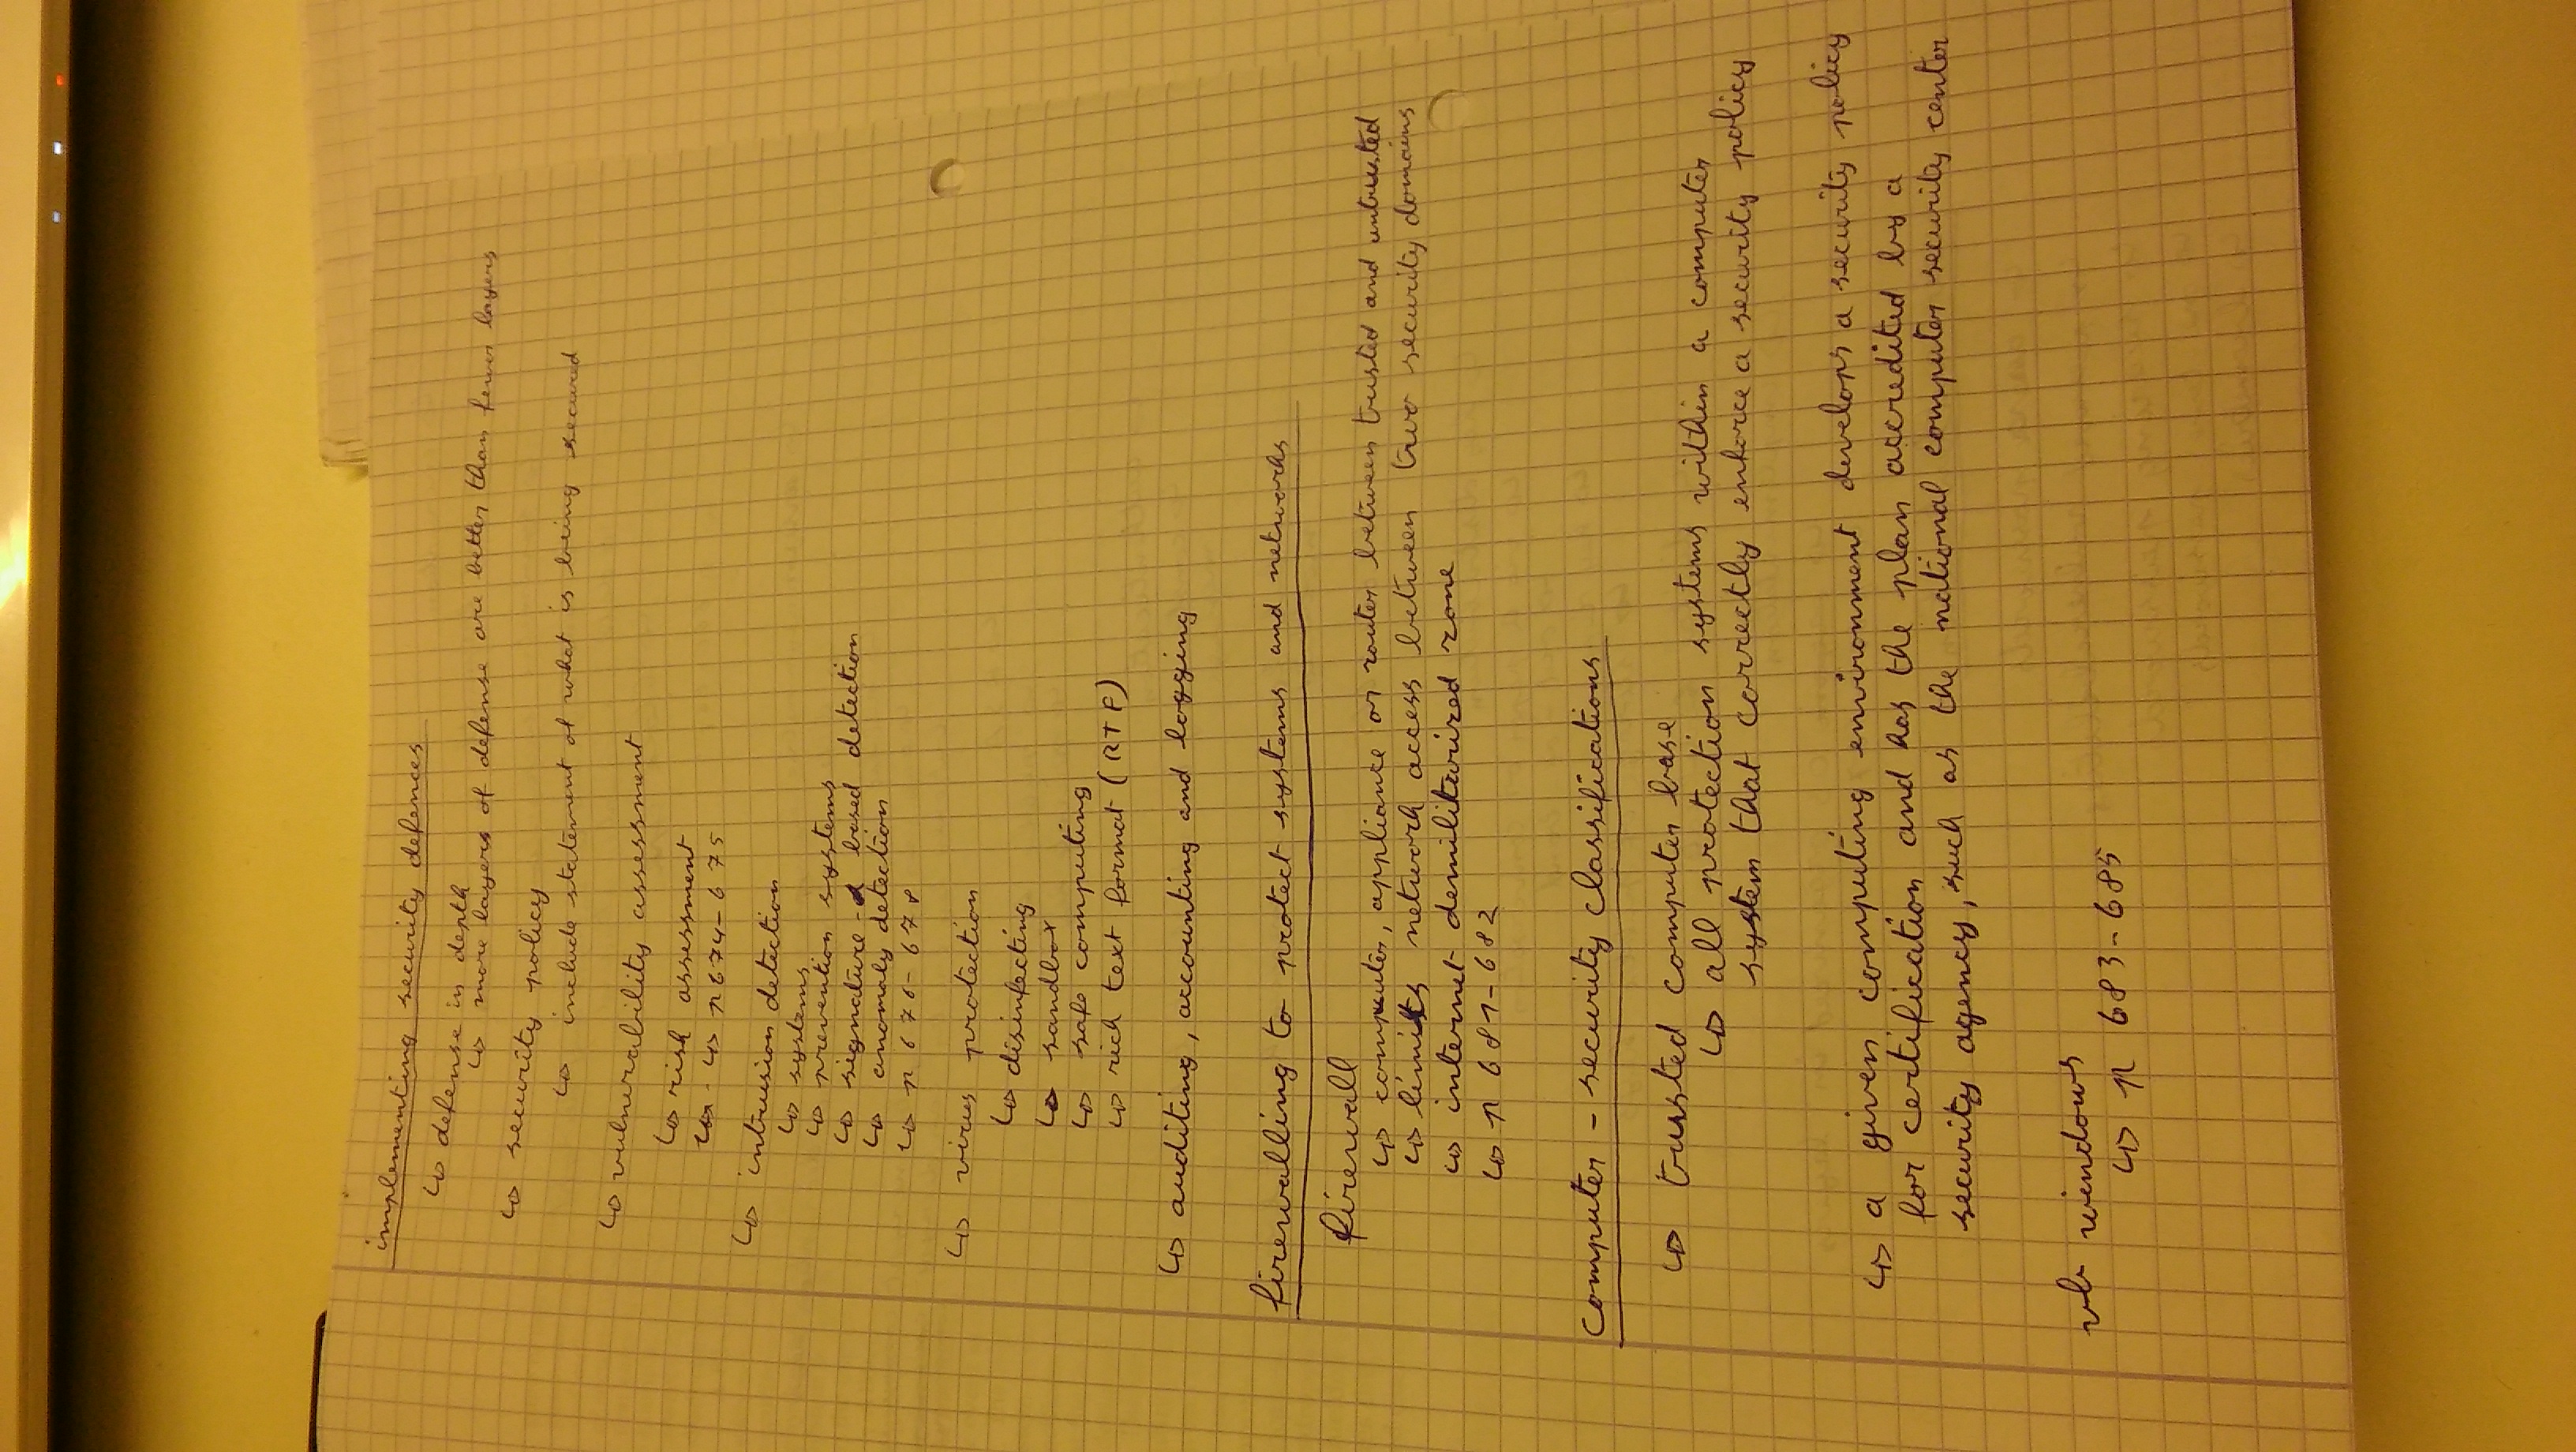 implementing security defences
↳ defense in depth
↳ more layers of defense are better than fewer layers
↳ security policy
↳ include statement of what is being secured
↳ vulnerability assessment
↳ risk assessment
↳ p 674-675
↳ intrusion detection
↳ systems
↳ prevention systems
↳ signature - based detection
↳ anomaly detection
↳ p 676-678
↳ virus protection
↳ disinfecting
↳ sandbox
↳ safe computing
↳ rich text format (RTF)
↳ auditing, accounting and logging
firewalling to protect systems and networks
firewall
↳ computer, appliance or router between trusted and untrusted
↳ limits network access between two security domains
↳ internet demilitarized zone
↳ p 681-682
computer - security classifications
↳ trusted computer base
↳ all protection systems within a computer
system that correctly enforce a security policy
↳ a given computing environment develops a security policy
for certification and has the plan accredited by a
security agency, such as the national computer security center
vb windows
↳ p 683-685